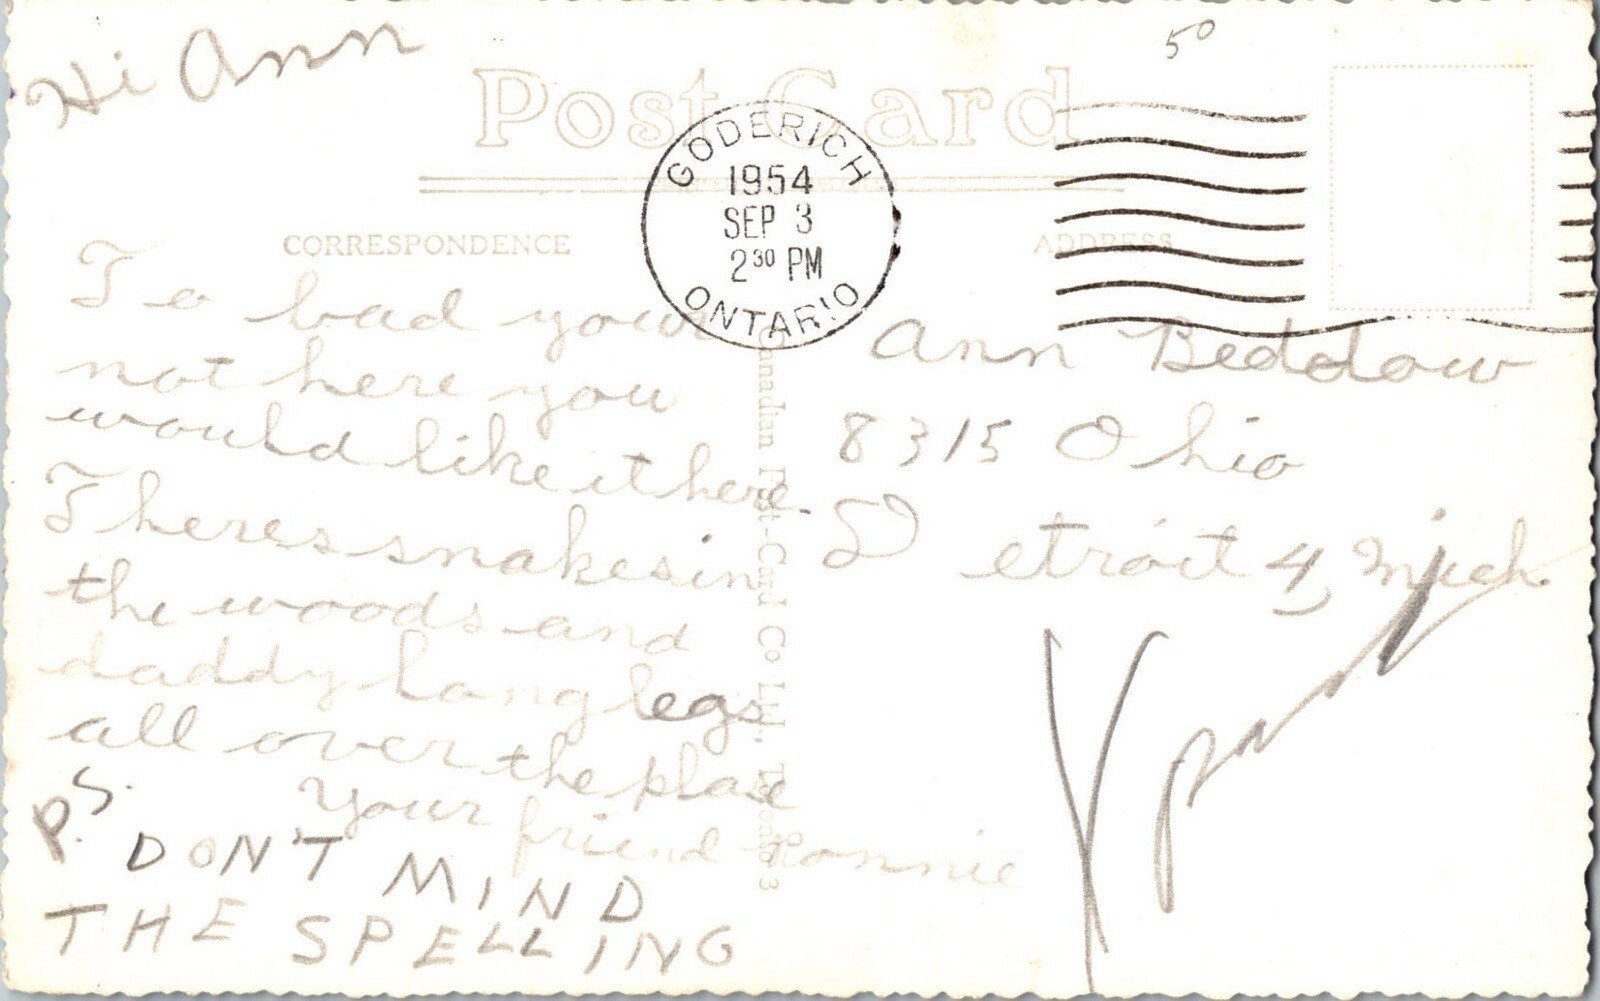 Hi Ann
50
Post Card
GODERICH
1954
SEP 3
2 30 PM
ONTARIO
CORRESPONDENCE
ADDRESS
To bad your
not here you
would like it here.
Theres snakes in
the woods and
daddy long legs
all over the place
Your friend Ronnie
P.S. DON'T MIND
THE SPELLING
Canadian Post-Card Co Ltd. Toronto 3
Ann Beddow
8315 Ohio
Detroit 4, Mich.